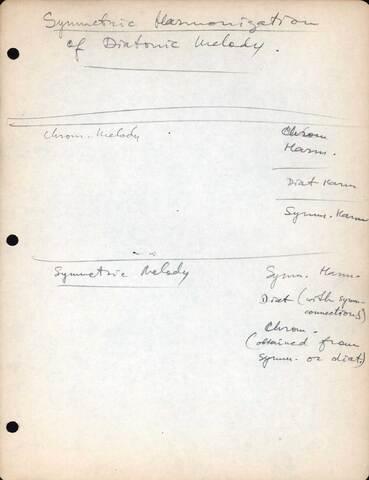 Symmetric Harmonization
of Diatonic Melody.
Chrom. Melody
Chrom
Harm.
Diat Harm
Symm. Harm
Symmetric Melody
Symm. Harm.
Diat (with symm.
connections)
Chrom.
(obtained from
symm. or diat.)